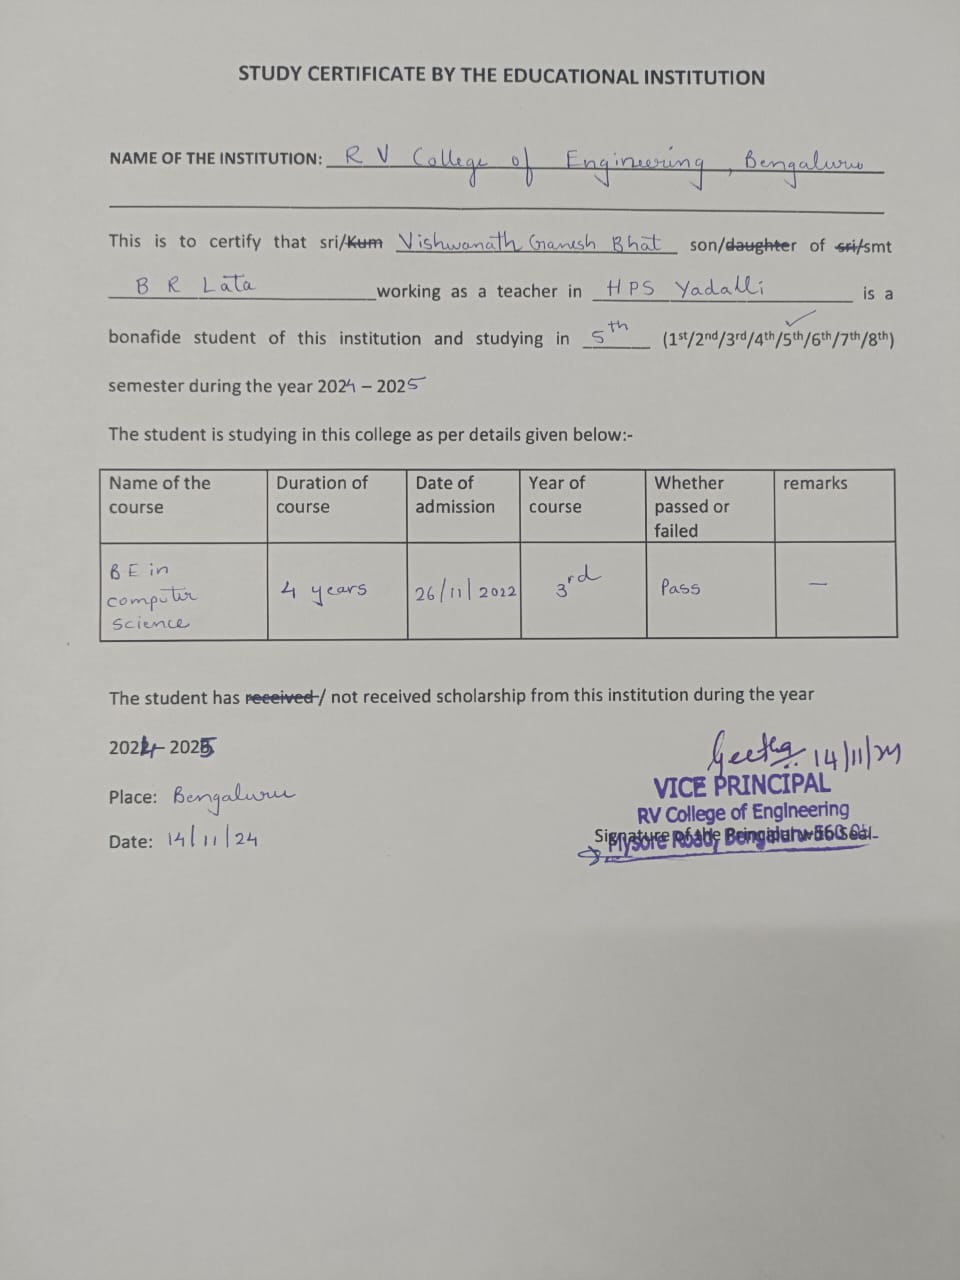 STUDY CERTIFICATE BY THE EDUCATIONAL INSTITUTION
NAME OF THE INSTITUTION: R V College of Engineering, Bengaluru
This is to certify that sri/Kum Vishwanath Ganesh Bhat son/daughter of sri/smt
B R Lata working as a teacher in HPS Yadalli is a
bonafide student of this institution and studying in 5th (1st/2nd/3rd/4th/5th/6th/7th/8th)
semester during the year 2024 – 2025
The student is studying in this college as per details given below:-
Name of the course Duration of course Date of admission Year of course Whether passed or failed remarks
BE in computer science 4 years 26/11/2022 3rd Pass —
The student has received / not received scholarship from this institution during the year
2024 - 2025
Geetha 14/11/24
Place: Bengaluru
VICE PRINCIPAL
RV College of Engineering
Date: 14/11/24
Signature of the Principal with Seal
Mysore Road, Bengaluru-560